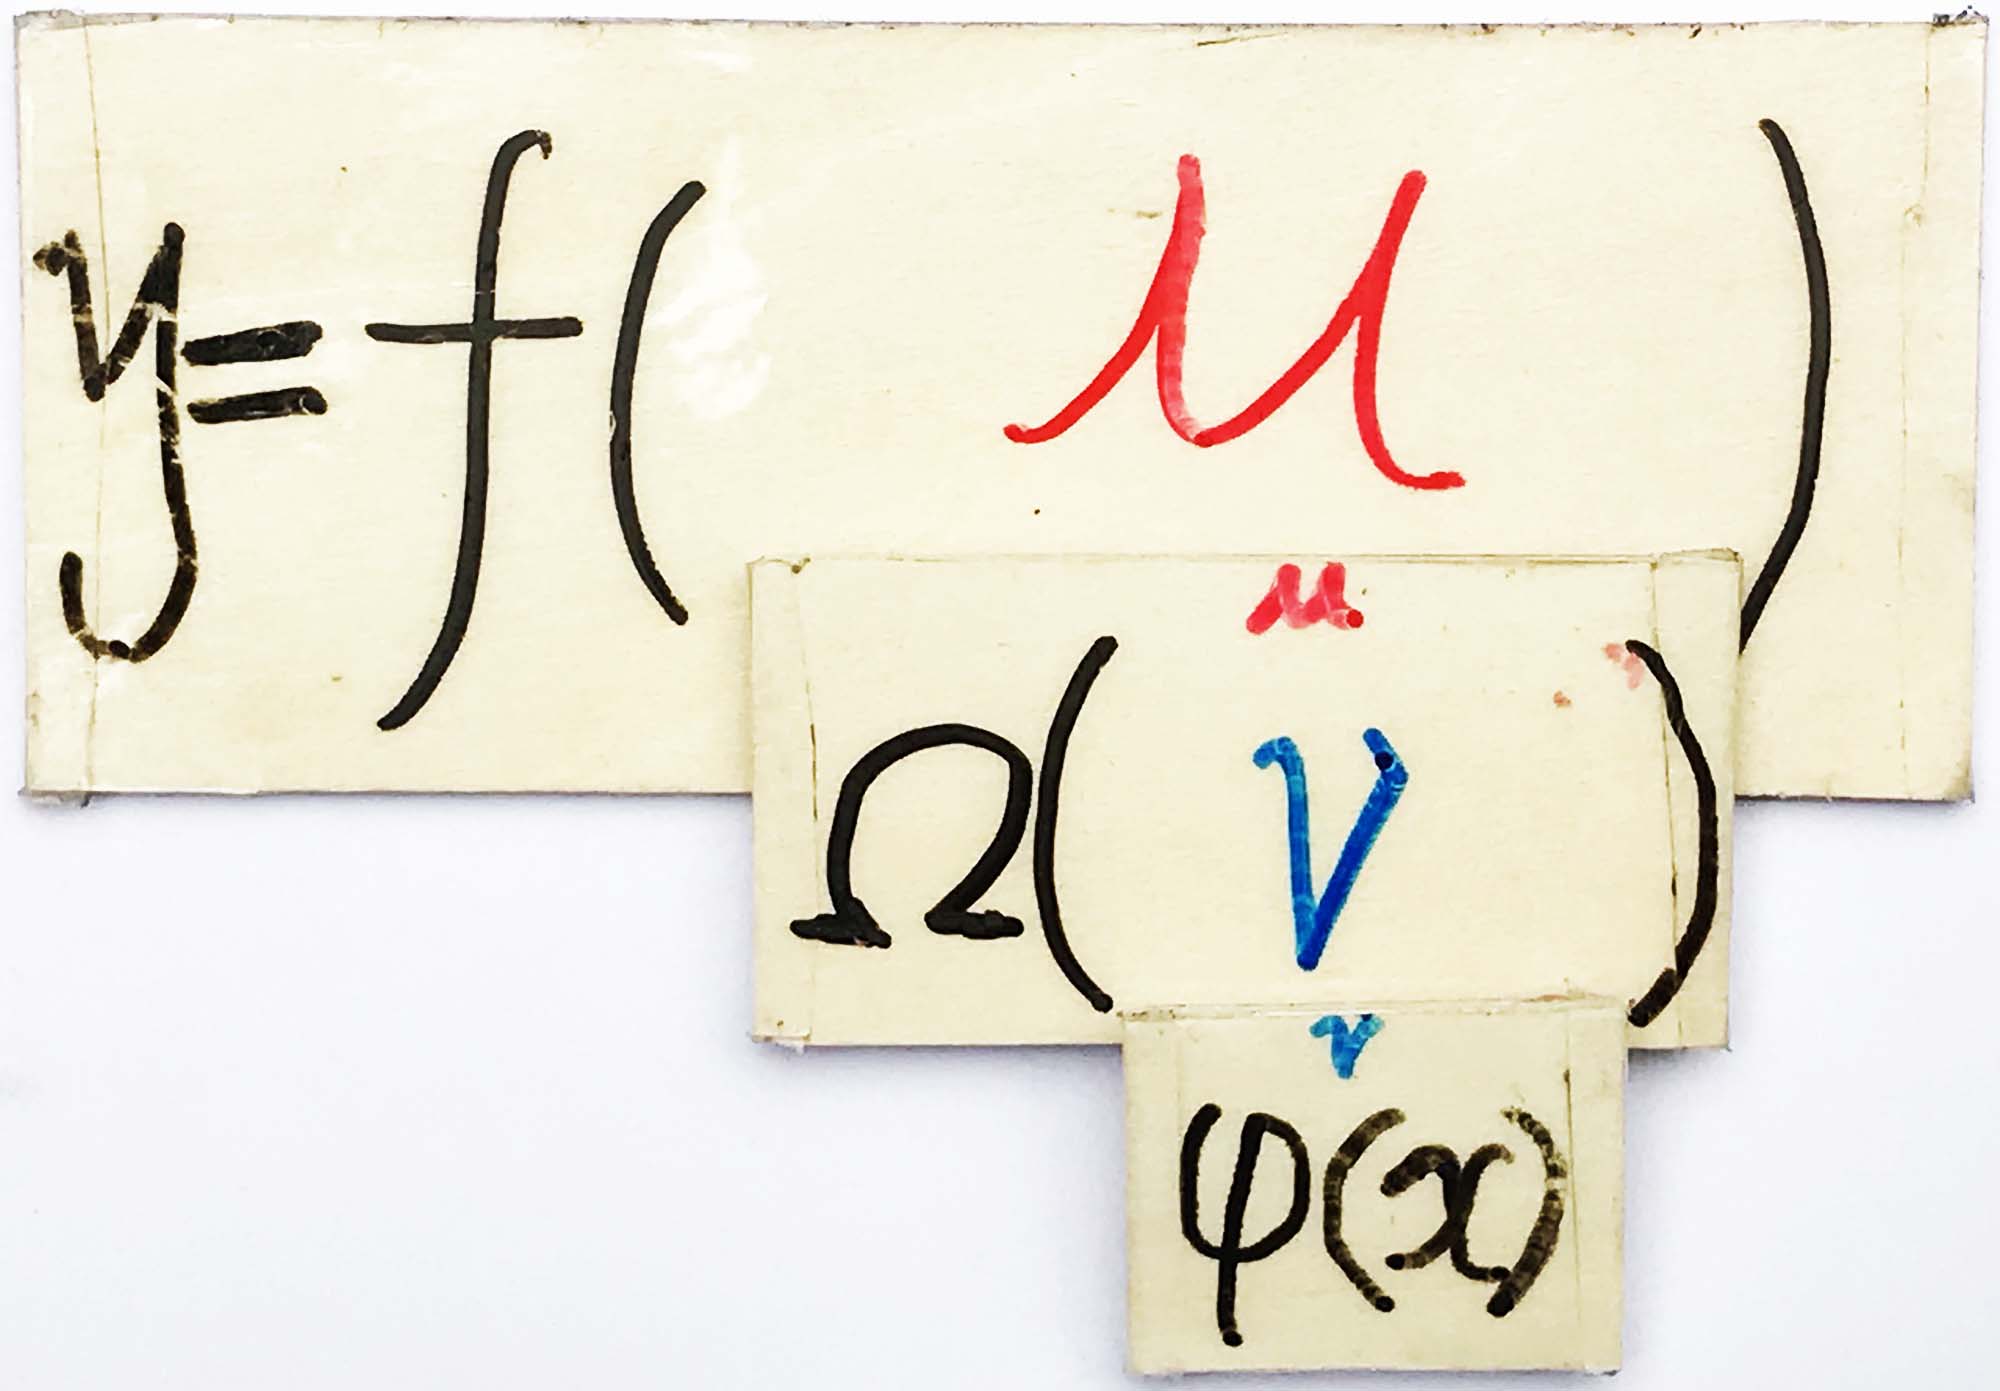 y=f( u )
u
Ω( v )
v
φ(x)